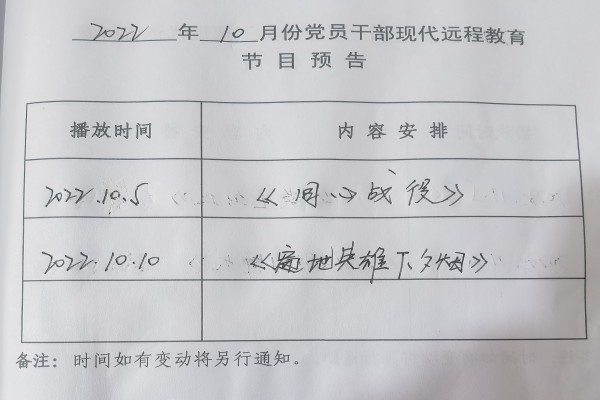 2022 年 10 月份党员干部现代远程教育
节目预告
播放时间 内容安排
2022.10.5 《同心战役》
2022.10.10 《高地英雄下夕烟》
备注：时间如有变动将另行通知。